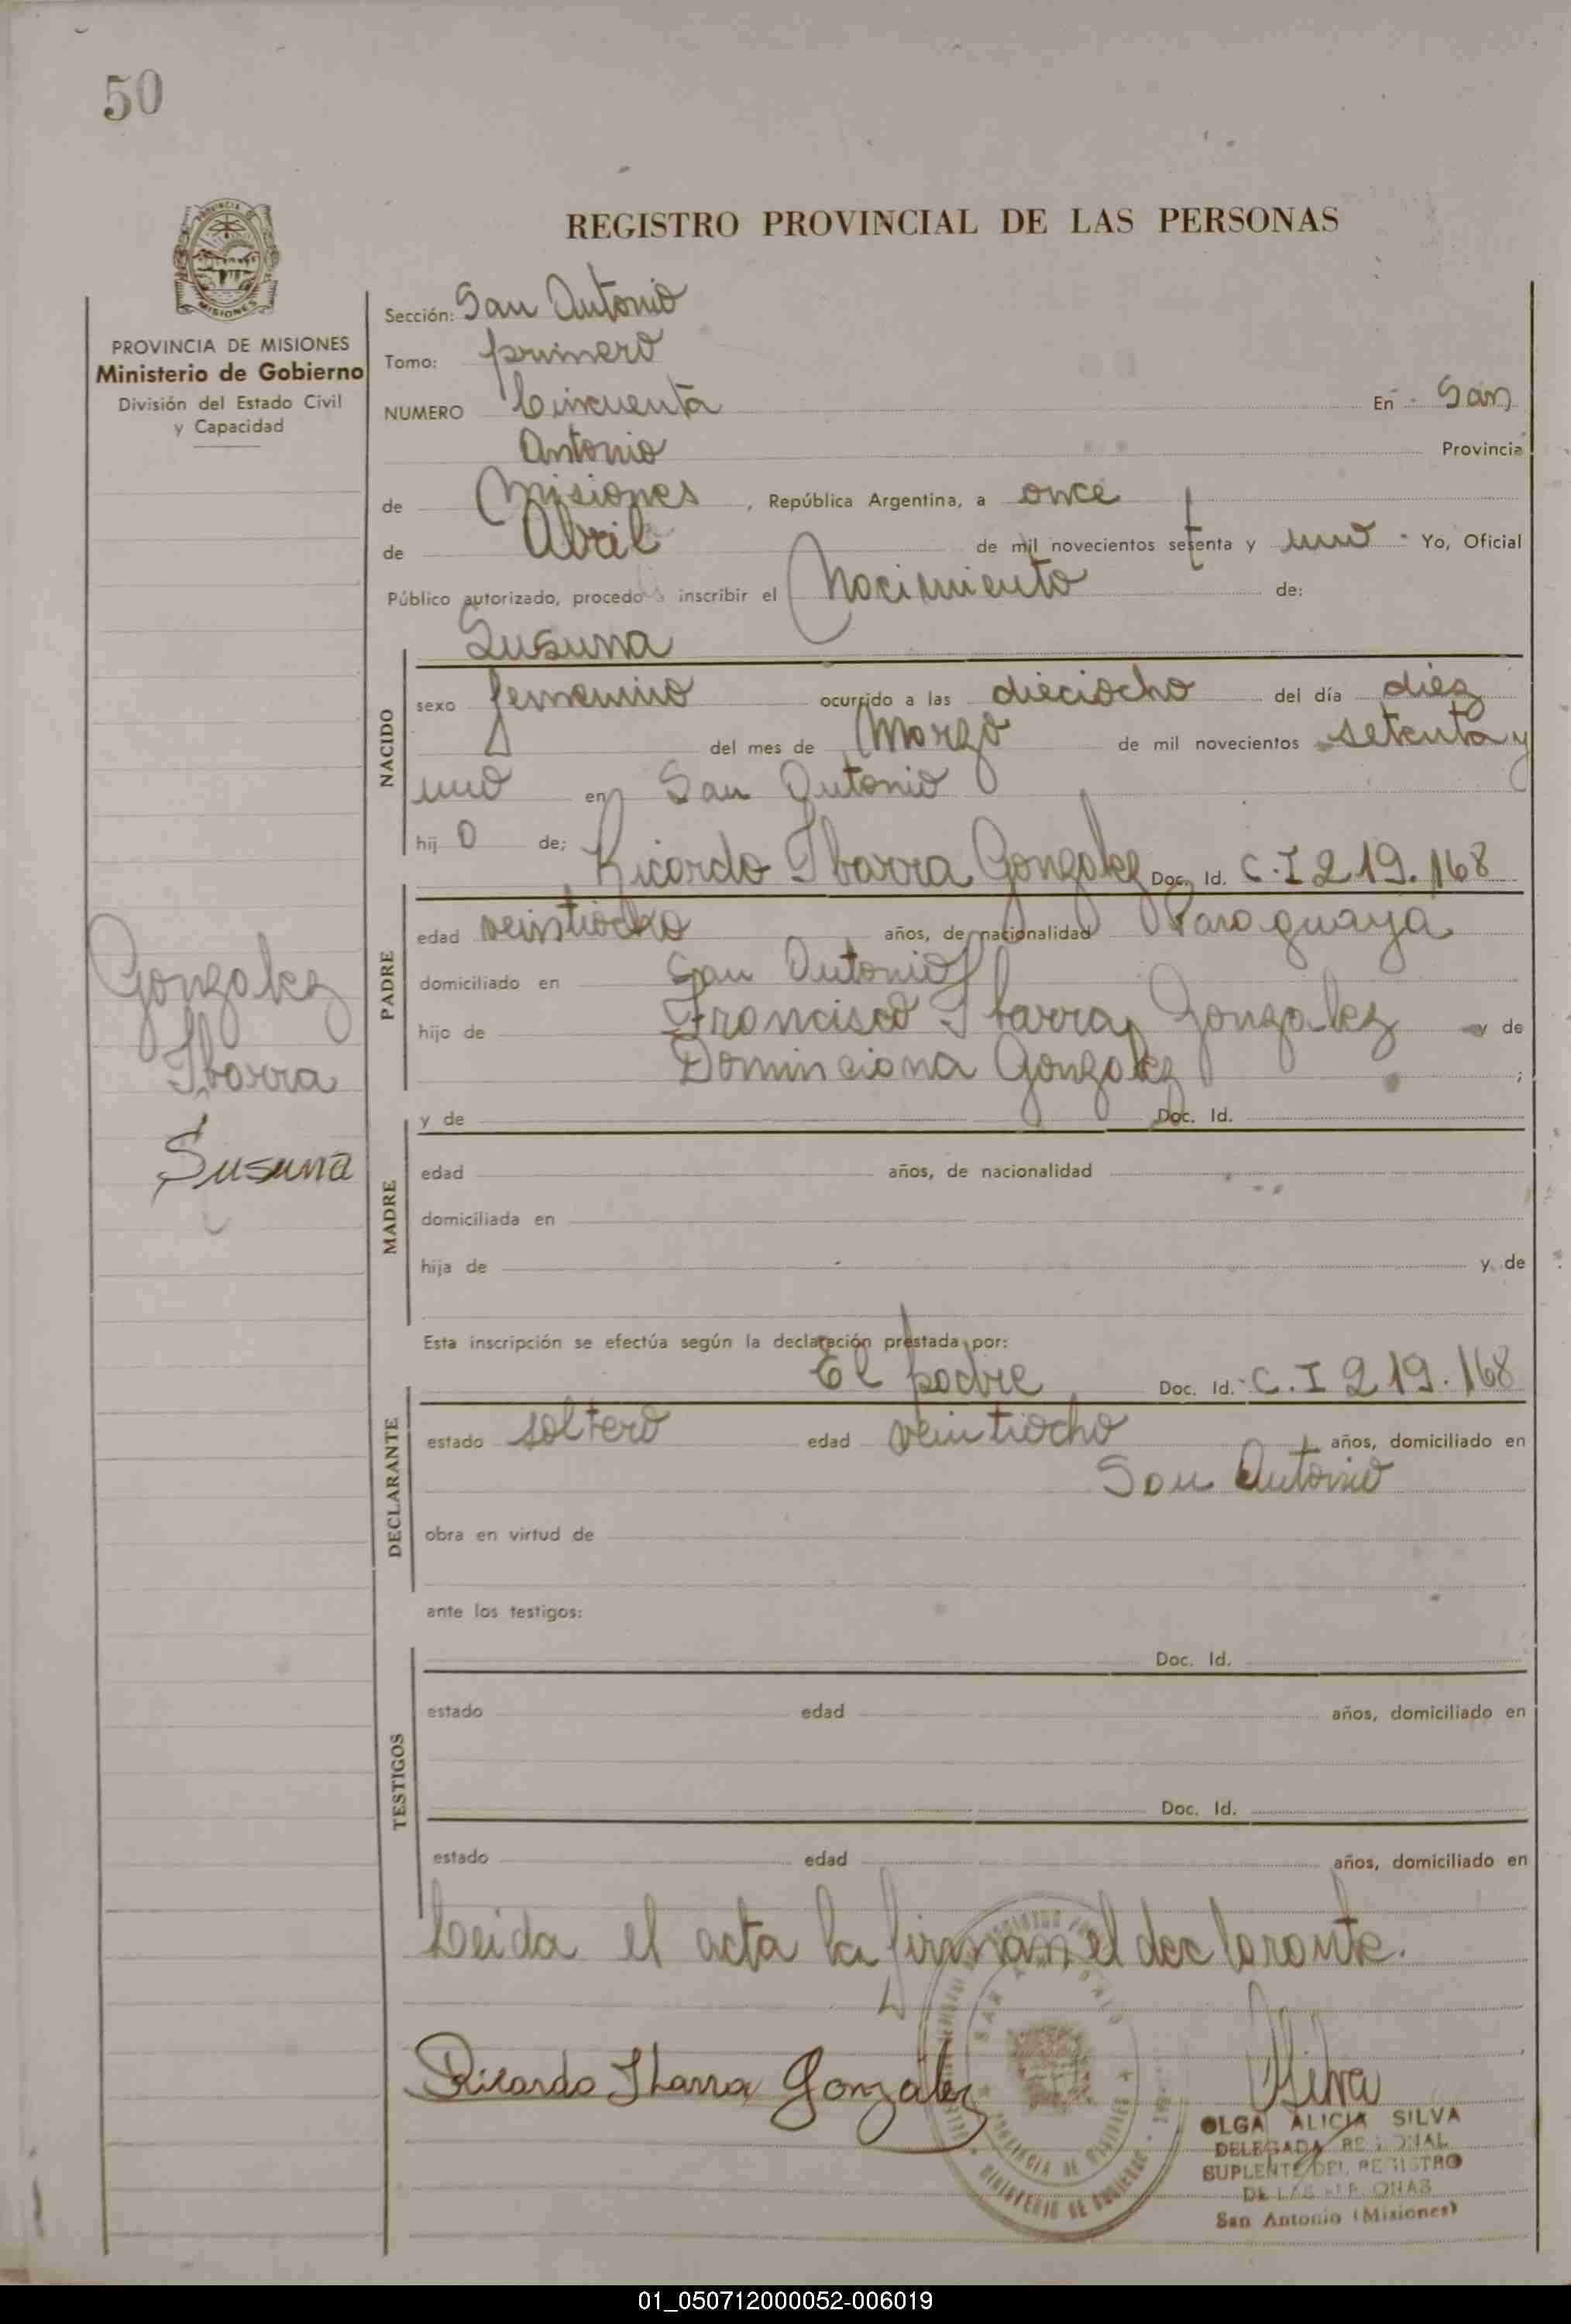 50
REGISTRO PROVINCIAL DE LAS PERSONAS
PROVINCIA DE MISIONES
Ministerio de Gobierno
División del Estado Civil
y Capacidad
Sección: San Antonio
Tomo: primero
NUMERO Cincuenta En San
Antonio Provincia
de Misiones, República Argentina, a once
de Abril de mil novecientos setenta y uno - Yo, Oficial
Público autorizado, procedo a inscribir el Nacimiento de:
Susuna
NACIDO
sexo femenino ocurrido a las dieciocho del día diez
del mes de Marzo de mil novecientos setenta y
uno en San Antonio
hijo de; Ricardo Ibarra Gonzalez Doc. Id. C.I 219.168
PADRE
edad veintiocho años, de nacionalidad Paraguaya
domiciliado en San Antonio
hijo de Francisco Ibarra Gonzalez y de
Dominciana Gonzalez ;
Gonzalez
Ibarra
Susuna
MADRE
y de Doc. Id.
edad años, de nacionalidad
domiciliada en
hija de y de
Esta inscripción se efectúa según la declaración prestada por:
El padre Doc. Id. C.I 219.168
DECLARANTE
estado soltero edad veintiocho años, domiciliado en
San Antonio
obra en virtud de
ante los testigos:
TESTIGOS
Doc. Id.
estado edad años, domiciliado en
Doc. Id.
estado edad años, domiciliado en
Leida el acta la firman el declarante.
Ricardo Ibarra González
Silva
OLGA ALICIA SILVA
DELEGADA REGIONAL
SUPLENTE DEL REGISTRO
DE LAS PERSONAS
San Antonio (Misiones)
01_050712000052-006019